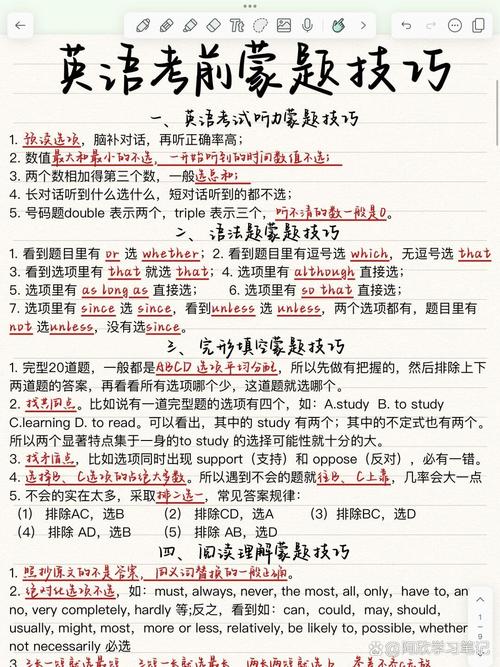 英语考前蒙题技巧
一、英语考试听力蒙题技巧
1. 预读选项，脑补对话，再听正确率高；
2. 数值最大和最小的不选，一开始听到的时间数值不选；
3. 两个数相加得第三个数，一般选总和；
4. 长对话听到什么选什么，短对话听到的都不选；
5. 号码题double 表示两个，triple 表示三个，听不清的数一般是0。
二、语法题蒙题技巧
1. 看到题目里有 or 选 whether；2. 看到题目里有逗号选 which，无逗号选 that
3. 看到选项里有 that 就选 that；4. 选项里有 although 直接选；
5. 选项里有 as long as 直接选； 6. 选项里有 so that 直接选；
7. 选项里有 since 选 since，看到unless 选 unless，两个选项都有，题目里有
not 选unless，没有选since。
三、完形填空蒙题技巧
1. 完型20道题，一般都是ABCD 选项平均分配，所以先做有把握的，然后排除上下
两道题的答案，再看看所有选项哪个少，这道题就选哪个。
2. 找共同点。比如说有一道完型题的选项有四个，如：A.study B. to study
C.learning D. to read。可以看出，其中的 study 有两个；其中的不定式也有两个。
所以两个显著特点集于一身的to study 的选择可能性就十分的大。
3. 找矛盾点，比如选项同时出现 support（支持）和 oppose（反对），必有一错。
4. 选择B、C选项的占绝大多数。所以遇到不会的题就往B、C上靠，几率会大一点
5. 不会的实在太多，采取排二选一，常见答案规律：
（1） 排除AC，选B （2） 排除CD，选A （3）排除BC，选D
（4） 排除 AD，选B （5） 排除 AB，选D
四、阅读理解蒙题技巧
1. 照抄原文的不是答案，同义词替换的一般正确。
2. 绝对化选项不选，如：must, always, never, the most, all, only，have to, an
no, very completely, hardly 等;反之，看到如：can，could，may, should,
usually, might, most，more or less, relatively, be likely to, possible, whether
not necessarily 必选
3. 三长一短就选最短，三短一长就选最长，两长两短就选B，参差不齐
1
9
知乎 @阿欣学习笔记